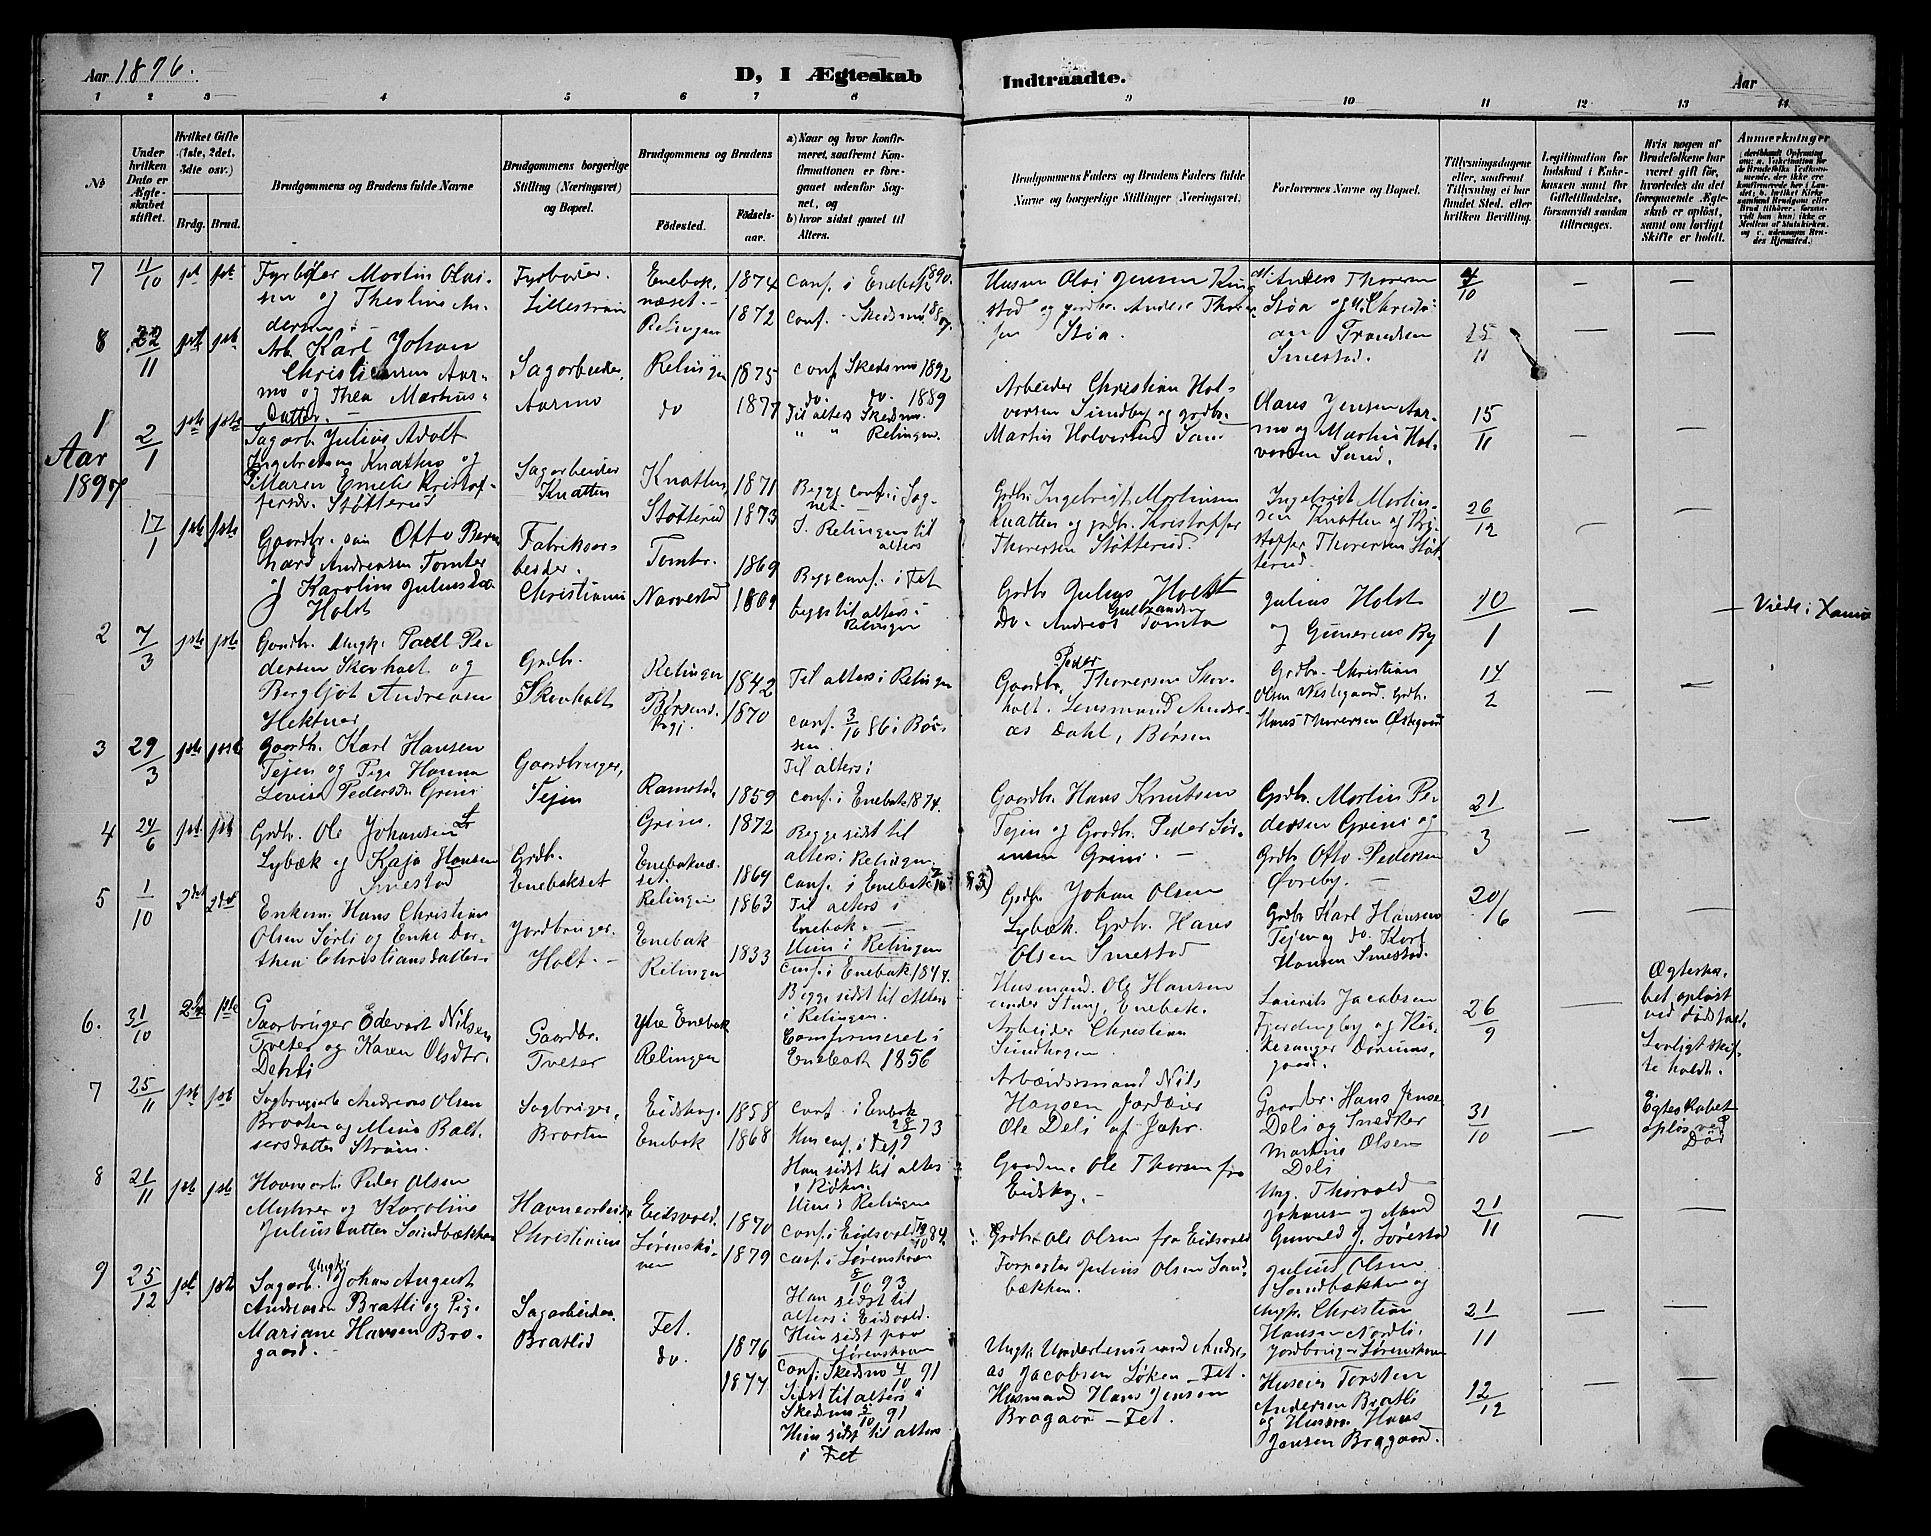 Aar 1896.
D, I Ægteskab
Indtraadte.
Aar
1 2 3 4 5 6 7 8 9 10 11 12 13 14
No
Under hvilken Dato er Ægteskabet stiftet.
Hvilket Gifte (1ste, 2det, 3die osv.)
Brdg. Brud.
Brudgommens og Brudens fulde Navne
Brudgommens borgerlige Stilling (Næringsvei) og Bopæl.
Brudgommens og Brudens
Födested.
Födselsaar.
a) Naar og hvor konfirmeret, saafremt Konfirmationen er foregaaet udenfor Sognet, og
b) hvor sidst gaaet til Alters.
Brudgommens Faders og Brudens Faders fulde Navne og borgerlige Stillinger (Næringsvei).
Forlovernes Navne og Bopæl.
Tillysningsdagene eller, saafremt Tillysning ei har fundet Sted, efter hvilken Bevilling.
Legitimation for Indskud i Enkekassen samt for Giftetilladelse, forsaavidt saadan tiltrænges.
Hvis nogen af Brudefolkene har været gift før, hvorledes da det foregaaende Ægteskab er oplöst, samt om lovligt Skifte er holdt.
Anmærkninger
7 11/10 1ste 1ste
Fyrbøder Martin Olaisen og Theoline Andersen
Fyrbøder Lillestrøm
Enebaknæset. Relingen
1874 1872
conf. i Enebak 1890.
conf. Skedsmo 1887.
Husm Olai Jensen Ringstad og grdbr. Anders Thoresen Støa
Anders Thoresen Støa og Christian Trondsen Smestad.
4/10
8 22/11 1ste 1ste
Arb. Karl Johan Christiansen Aarmo og Thea Martinsdatter
Sagarbeider, Aarmo
Relingen do
1875 1877
conf. Skedsmo 1892
do. do. 1889
Til alters Skedsmo
" " Relingen.
Arbeider Christian Halvorsen Sundby og grdbr. Martin Halvorsen Sand
Claus Jensen Aarmo og Martin Halvorsen Sand.
25/11 15/11
Aar 1897
1 2/1 1ste 1ste
Sagarb. Julius Adolf Ingebretsen Knatten og Pi Maren Emelie Kristoffersdr. Støtterud
Sagarbeider Knatten
Knatten, Støtterud
1871 1873
Begge conf. i Sognet.
I Relingen til alters
Grdbr. Ingebrigt Martinsen Knatten og grdbr. Kristoffer Thoresen Støtterud.
Ingebrigt Martinsen Knatten og Kristoffer Thoresen Støtterud.
26/12
17/1 1ste 1ste
Gaardbr. søn Otto Bernhard Andreasen Tomter og Karoline Juliusdr. Holdt
Fabriksarbeider. Christiania
Tomtr. Narvestad
1869 1869
Begge conf. i Fet
begge til alters i Relingen
Grdbr Julius Holdt
do. Andreas Gulbrandsen Tomta
Julius Holst og Gunerius By
10/1
Viede i Xania
2 7/3 1ste 1ste
Gaardbr. Ungk. Paul Pedersen Skovholt og Bergljot Andreasen Hektner
Grdbr. Skovholt
Relingen Børsend. Pgj.
1842 1870
Til alters i Relingen
conf. 3/10 86 i Børsen.
Til alters i
Gaardbr. Peder Thoresen Skovholt. Lensmand Andreas Dahl, Børsen
Grdbr. Christian Olsen Vestgaard. Grdbr. Hans Thoresen Østgaard
14/2
3 29/3 1ste 1ste
Gaardbr. Karl Hansen Tejen og Pige Hanna Lovise Pedersdr. Grini
Gaardbruger, Tejen
Ramstad, Grini.
1859 1872
conf. i Enebak 1874.
Begge sidst til alters i Relingen.
Gaardbr. Hans Knutsen Tejen og Gaardbr. Peder Sørensen Grini.
Grdbr. Martin Pedersen Grini og Grdbr Otto Pedersen Øvreby.
21/3
4 24/6 1ste 1ste
Grdbr. Ole Johansen Lybæk og Kaja Hansen Smestad
Grdbr. Enebakset
Enebaknæset. Relingen
1869 1863
conf. i Enebak
Til alters i Enebak.
Hun i Relingen
Grdbr Johan Olsen Lybæk. Grdbr. Hans Olsen Smestad
Grdbr Karl Hansen Tejen og do. Karl Hansen Smestad.
20/6
5 1/10 2det 2det
Enkem. Hans Christian Olsen Sørli og Enke Dorthea Christiansdatter
Jordbruger. Holt.
Enebak Relingen
1833
conf. i Enebak 1847.
Begge sidst til Alters i Relingen.
Husmand Ole Hansen under Stang, Enebak.
Arbeider Christian Sundhagen
Laurits Jacobsen Fjerdingby og
26/9
Ægteskabet opløst ved Dødsfald. Lovligt skifte holdt.
6. 31/10 2det 1ste
Gaardbruger Edevart Nilsen Tveter og Karen Olsdtr. Dehli
Gaardbr. Tveter
Ytre Enebak Relingen
Comfirmeret i Enebak 1856
Arbeidsmand Nils Hansen
Ole Deli
Gaardbr. Hans Jensen Deli og Snedker Martin Olsen Deli
31/10
Egteskabet opløs. ved Død
7 25/11 1ste 1ste
Sagbrugarb Andreas Olsen Braaten og Mina Baltsersdatter Strøm.
Sagbruger, Braaten
Eidskog. Enebak
1858 1868
conf. i Enebak 28/9 73
Hun conf. i Fet.
Han sidst til alters i
Hun i Relingen
Gaardm. Ole Thorsen fra Eidskog.
Ung. Thorvald Johansen og
21/11
8 21/11 1ste 1ste
Havnearb. Peder Olsen Myhrer og Karoline Juliusdatter Sandbækken
Havnearbeider Christiania
Eidsvold. Lørenskoven
1870 1879
conf. i Eidsvold 19/10 84.
conf. i Lørenskoven 8/10 93
Han sidst til alters i Eidsvold.
Hun sidst paa Lørenskoven
Grdbr. Ole Olsen fra Eidsvold
Forpagter Julius Olsen Sandbækken.
Julius Olsen Sandbækken og Ungk. Christian Hansen Nordli, Jordbruger Lørenskoven
21/11
9 25/12 1ste 1ste
Sagarb. Ungk. Johan August Andreassen Bratli og Pige Mariane Hansen Bragaard.
Sagarbeider Bratlid
Fet. do.
1876 1877
Conf. i Skedsmo 4/10 91
Sidst til alters i Skedsmo 5/10 91
Hun sidst til alters i Fet
Ungk. Underlensmand Andreas Jacobsen Løken – Fet.
Husmand Hans Jensen Bragaard – Fet.
Huseier Torsten Andersen Bratli og Husm. Hans Jensen Bragaard.
12/12